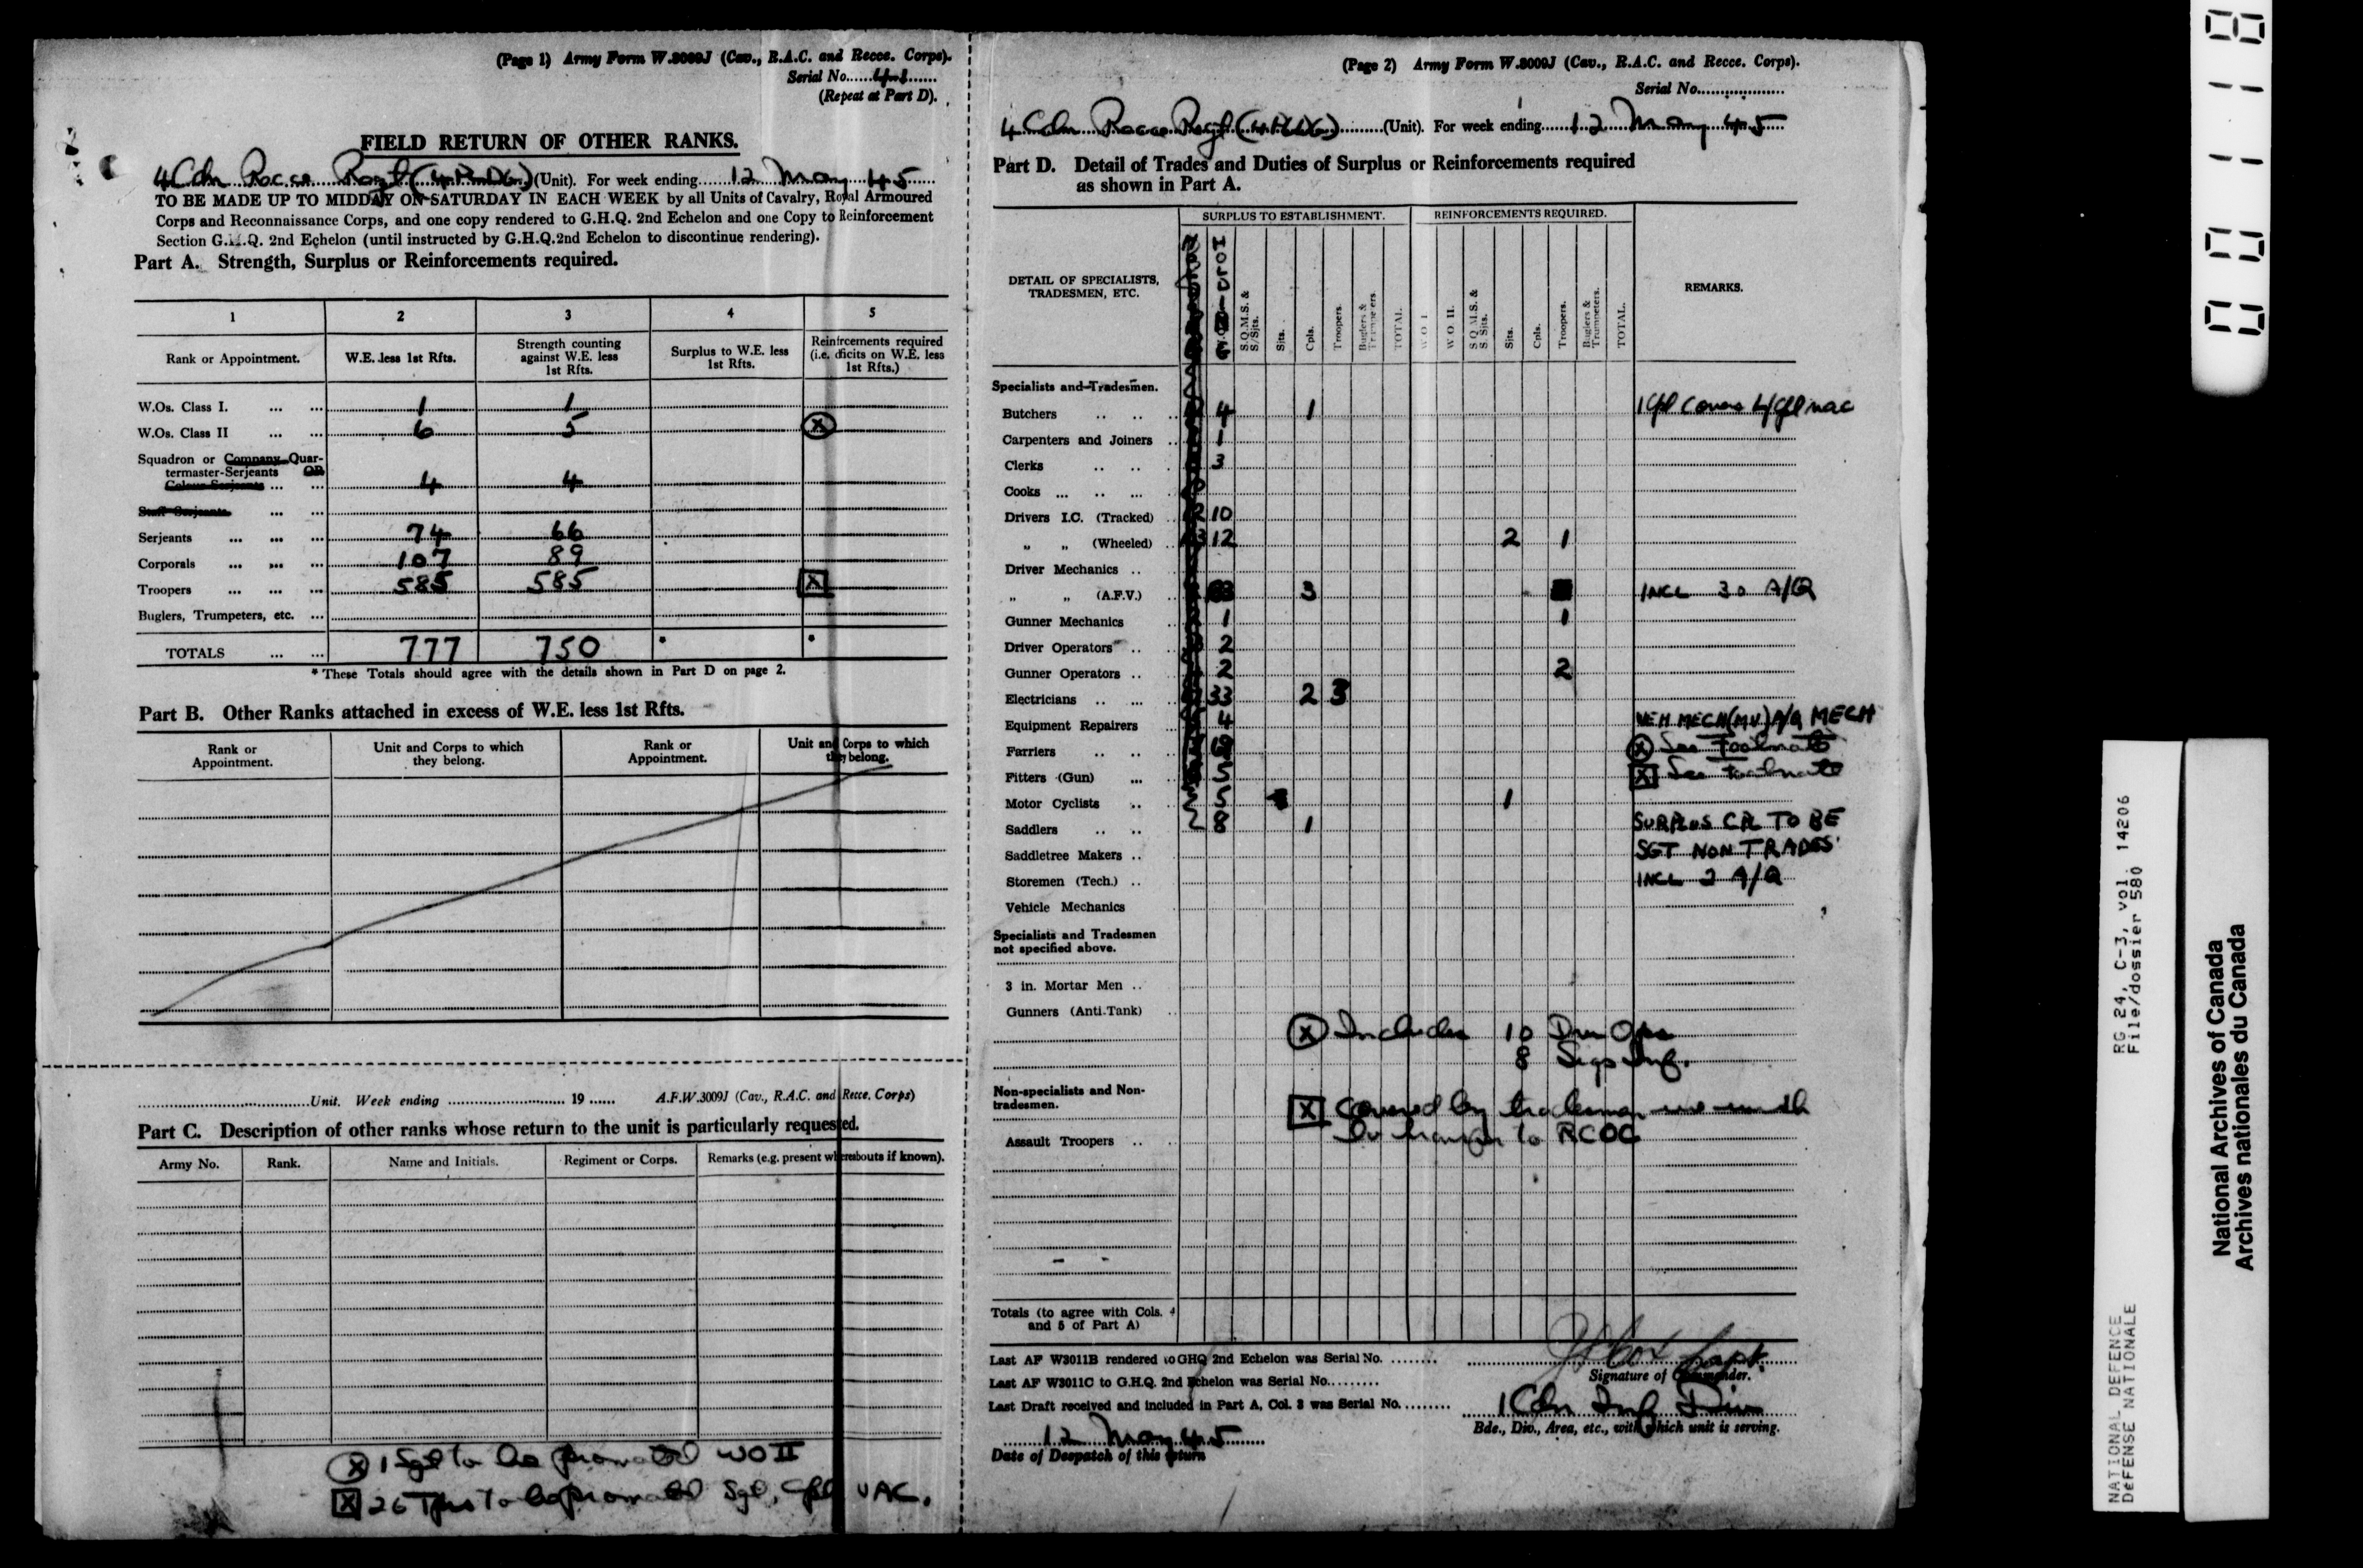 (Page 1) Army Form W.3009J (Cav., R.A.C. and Recce. Corps).
Serial No.
(Repeat at Part D).
FIELD RETURN OF OTHER RANKS.
4 Cdn Recce Regt (4 PLDG) (Unit). For week ending 12 May 45
TO BE MADE UP TO MIDDAY ON SATURDAY IN EACH WEEK by all Units of Cavalry, Royal Armoured
Corps and Reconnaissance Corps, and one copy rendered to G.H.Q. 2nd Echelon and one Copy to Reinforcement
Section G.H.Q. 2nd Echelon (until instructed by G.H.Q.2nd Echelon to discontinue rendering).
Part A. Strength, Surplus or Reinforcements required.
1 2 3 4 5
Rank or Appointment. W.E. less 1st Rfts. Strength counting against W.E. less 1st Rfts. Surplus to W.E. less 1st Rfts. Reinfrcements required (i.e. dficits on W.E. less 1st Rfts.)
W.Os. Class I. ... ... 1 1
W.Os. Class II ... ... 6 5 X
Squadron or Company Quar-
termaster-Serjeants OR
Colour-Serjeants ... ... 4 4
Staff-Serjeants ... ...
Serjeants ... ... ... 74 66
Corporals ... ... ... 107 89
Troopers ... ... ... 585 585 X
Buglers, Trumpeters, etc. ...
TOTALS ... ... 777 750 * *
* These Totals should agree with the details shown in Part D on page 2.
Part B. Other Ranks attached in excess of W.E. less 1st Rfts.
Rank or Appointment. Unit and Corps to which they belong. Rank or Appointment. Unit and Corps to which they belong.
Unit. Week ending 19 A.F.W.3009J (Cav., R.A.C. and Recce. Corps)
Part C. Description of other ranks whose return to the unit is particularly requested.
Army No. Rank. Name and Initials. Regiment or Corps. Remarks (e.g. present whereabouts if known).
X 1 Sgt to be promoted WO II
X 26 Tprs to be promoted Sgt, Cpl
(Page 2) Army Form W.3009J (Cav., R.A.C. and Recce. Corps).
Serial No.
4 Cdn Recce Regt (4 PLDG) (Unit). For week ending 12 May 45
Part D. Detail of Trades and Duties of Surplus or Reinforcements required
as shown in Part A.
SURPLUS TO ESTABLISHMENT. REINFORCEMENTS REQUIRED.
DETAIL OF SPECIALISTS, TRADESMEN, ETC. S.Q.M.S. & S/Sjts. Sjts. Cpls. Troopers. Buglers & Trumpeters. TOTAL. W.O. I. W.O. II. S.Q.M.S. & S.Sjts. Sjts. Cpls. Troopers. Buglers & Trumpeters. TOTAL. REMARKS.
Specialists and Tradesmen.
Butchers .. .. 4 1 1 Cpl covers
Carpenters and Joiners .. 1
Clerks .. .. 3
Cooks ... .. ...
Drivers I.C. (Tracked) 10
„ „ (Wheeled) .. 12 2 1
Driver Mechanics ..
„ „ (A.F.V.) 3 INCL 30 A/Q
Gunner Mechanics 1 1
Driver Operators .. 2
Gunner Operators .. 2 2
Electricians .. ... 33 2 3
Equipment Repairers 4 VEH MECH (M.V.) A/Q MECH
Farriers .. .. X See Footnote
Fitters (Gun) ... 5 X See Footnote
Motor Cyclists .. 5 1
Saddlers .. .. 8 1 SURPLUS CPL TO BE
Saddletree Makers .. SGT NON TRADES
Storemen (Tech.) .. INCL 2 A/Q
Vehicle Mechanics
Specialists and Tradesmen
not specified above.
3 in. Mortar Men ..
Gunners (Anti-Tank)
X Includes 10 Dvr Ops
8 Sigs Inf.
Non-specialists and Non-
tradesmen.
X Covered by tradesmen
to RCOC
Assault Troopers ..
Totals (to agree with Cols. 4
and 5 of Part A)
Last AF W3011B rendered to GHQ 2nd Echelon was Serial No.
Last AF W3011C to G.H.Q. 2nd Echelon was Serial No.
Last Draft received and included in Part A, Col. 3 was Serial No.
Capt
Signature of Commander.
1 Cdn Inf Div
Bde., Div., Area, etc., with which unit is serving.
12 May 45
Date of Despatch of this return
NATIONAL DEFENCE RG 24, C-3, vol. 14206
DEFENSE NATIONALE File/dossier 580
National Archives of Canada
Archives nationales du Canada